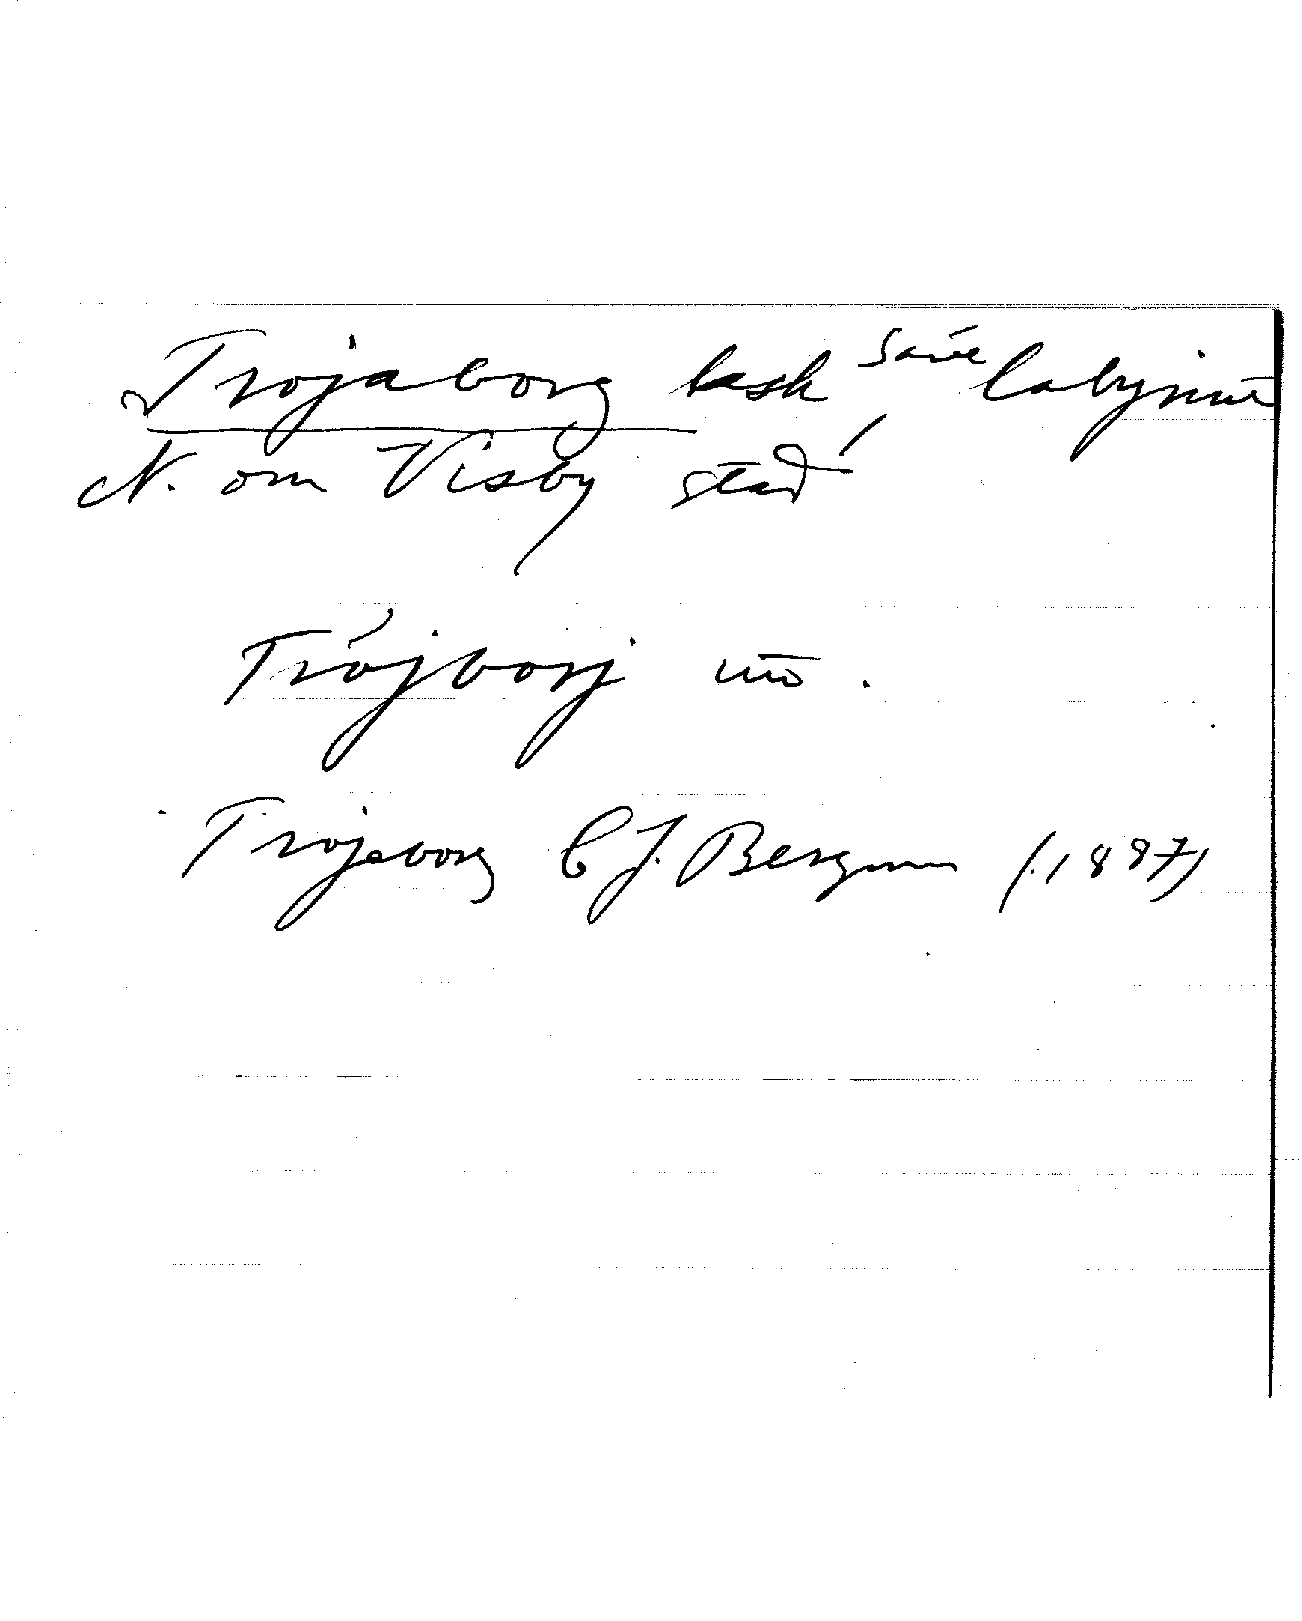 Trojaborg besk Säve labyrint
N. om Visby stad
Trójborj uto.
Trojeborg C J. Bergman (1887)